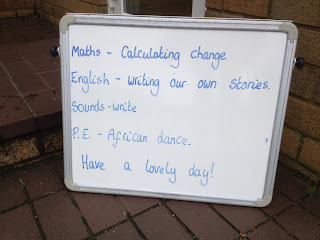 Maths - Calculating change
English - writing our own stories.
Sounds-write
P.E. - African dance.
Have a lovely day!